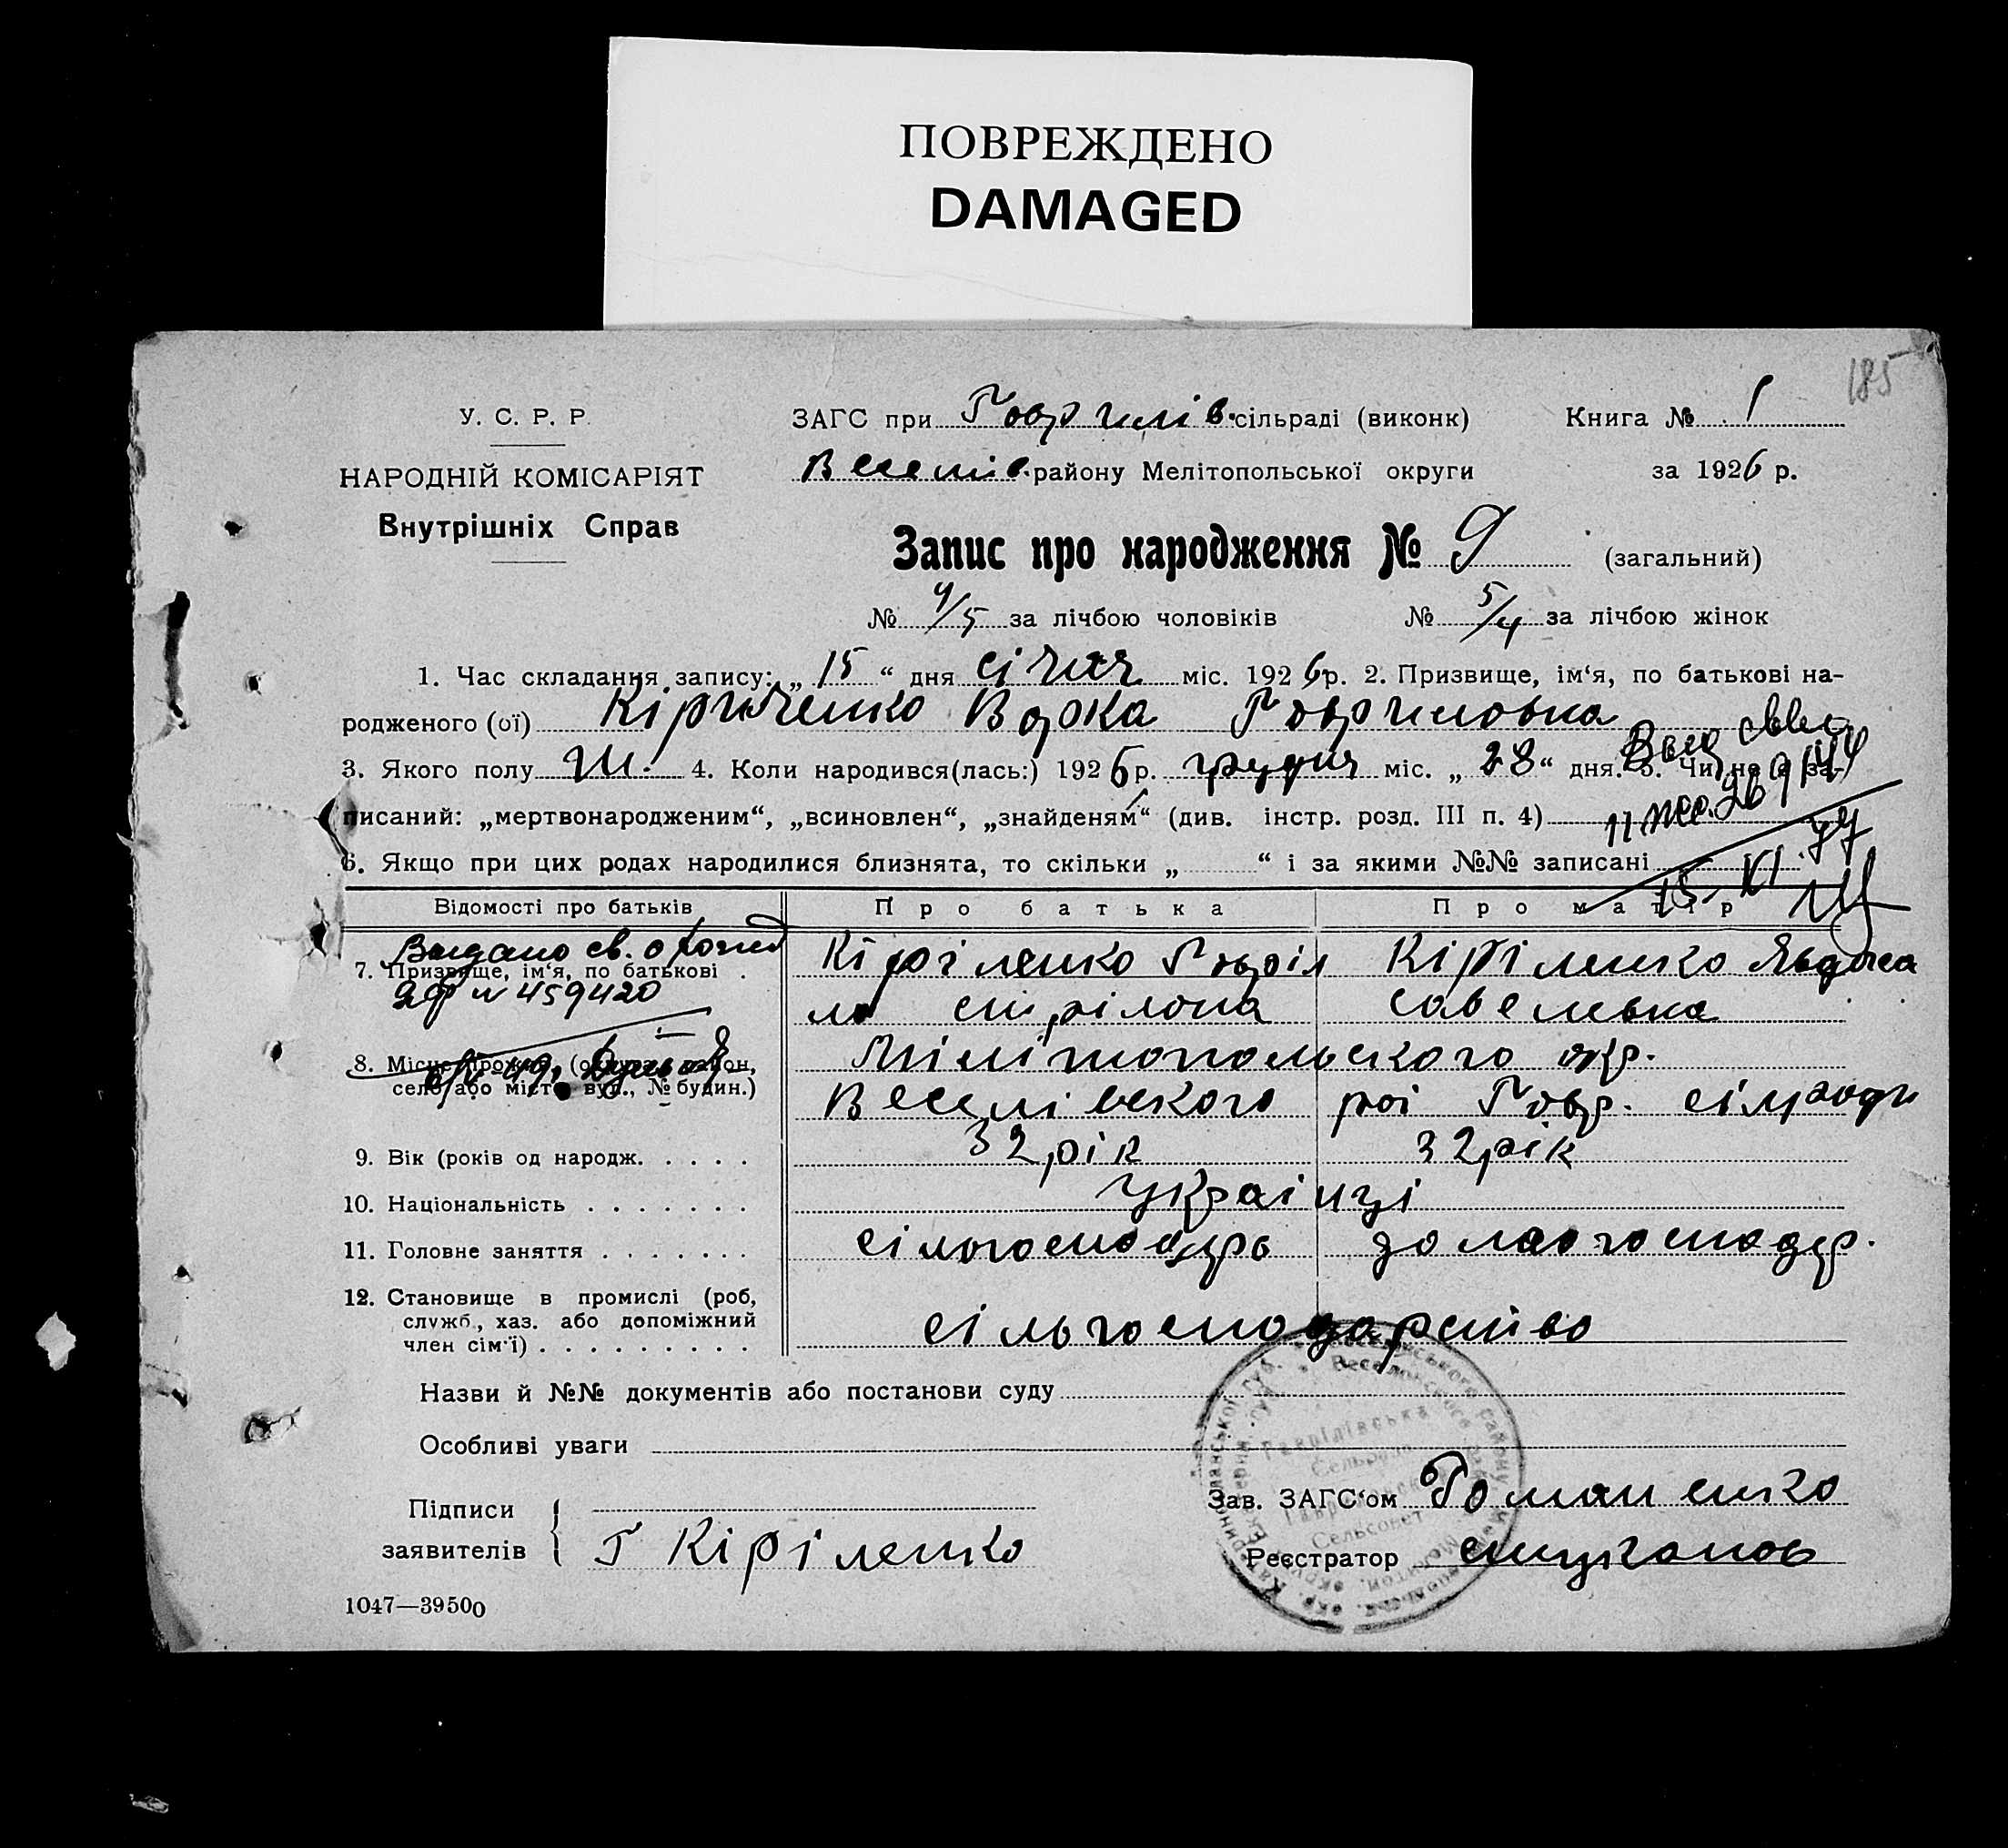 ПОВРЕЖДЕНО
DAMAGED
185
У. С. Р. Р.
НАРОДНІЙ КОМІСАРІЯТ
Внутрішніх Справ
ЗАГС при Гаврилів. сільраді (виконк)
Веселів. району Мелітопольської округи
Книга № 1
за 1926 р.
Запис про народження № 9 (загальний)
№ 4/5 за лічбою чоловіків № 5/4 за лічбою жінок
1. Час складання запису: „ 15 “ дня січня міс. 1926 р. 2. Призвище, ім‘я, по батькові на-
родженого (ої) Кіриленко Варка Гавриловна
3. Якого полу 4. Коли народився(лась:) 192 р. грудня міс. „ 28 “ дня. 5. Чи не є за-
писаний: „мертвонародженим“, „всиновлен“, „знайденям“ (див. інстр. розд. III п. 4)
6. Якщо при цих родах народилися близнята, то скільки „ “ і за якими №№ записані
15. XI. 77
Відомості про батьків Про батька Про матір
Видано св. о
7. Призвище, ім‘я, по батькові . Кіріленко Гавріл Кіріленко Явдоха
№ 459420
ло Савельвна
8. Місце прожив. (округа, район, Мілітопольского окр.
село або місто вул., № будин.) Веселівского Гавр. сілради
9. Вік (років од народж. . . . . 32 рік 32 рік
10. Національність . . . . . . . українці
11. Головне заняття . . . . . . . сільгосподарь домогосподар.
12. Становище в промислі (роб,
служб., хаз. або допоміжний
член сім‘ї) . . . . . . . . . сільгосподарство
Назви й №№ документів або постанови суду
Особливі уваги
Гаврілівська
Сельрада
Сельсовет
Підписи
заявителів Г Кіріленко
Зав. ЗАГС‘ом Романенко
Реєстратор
1047—39500